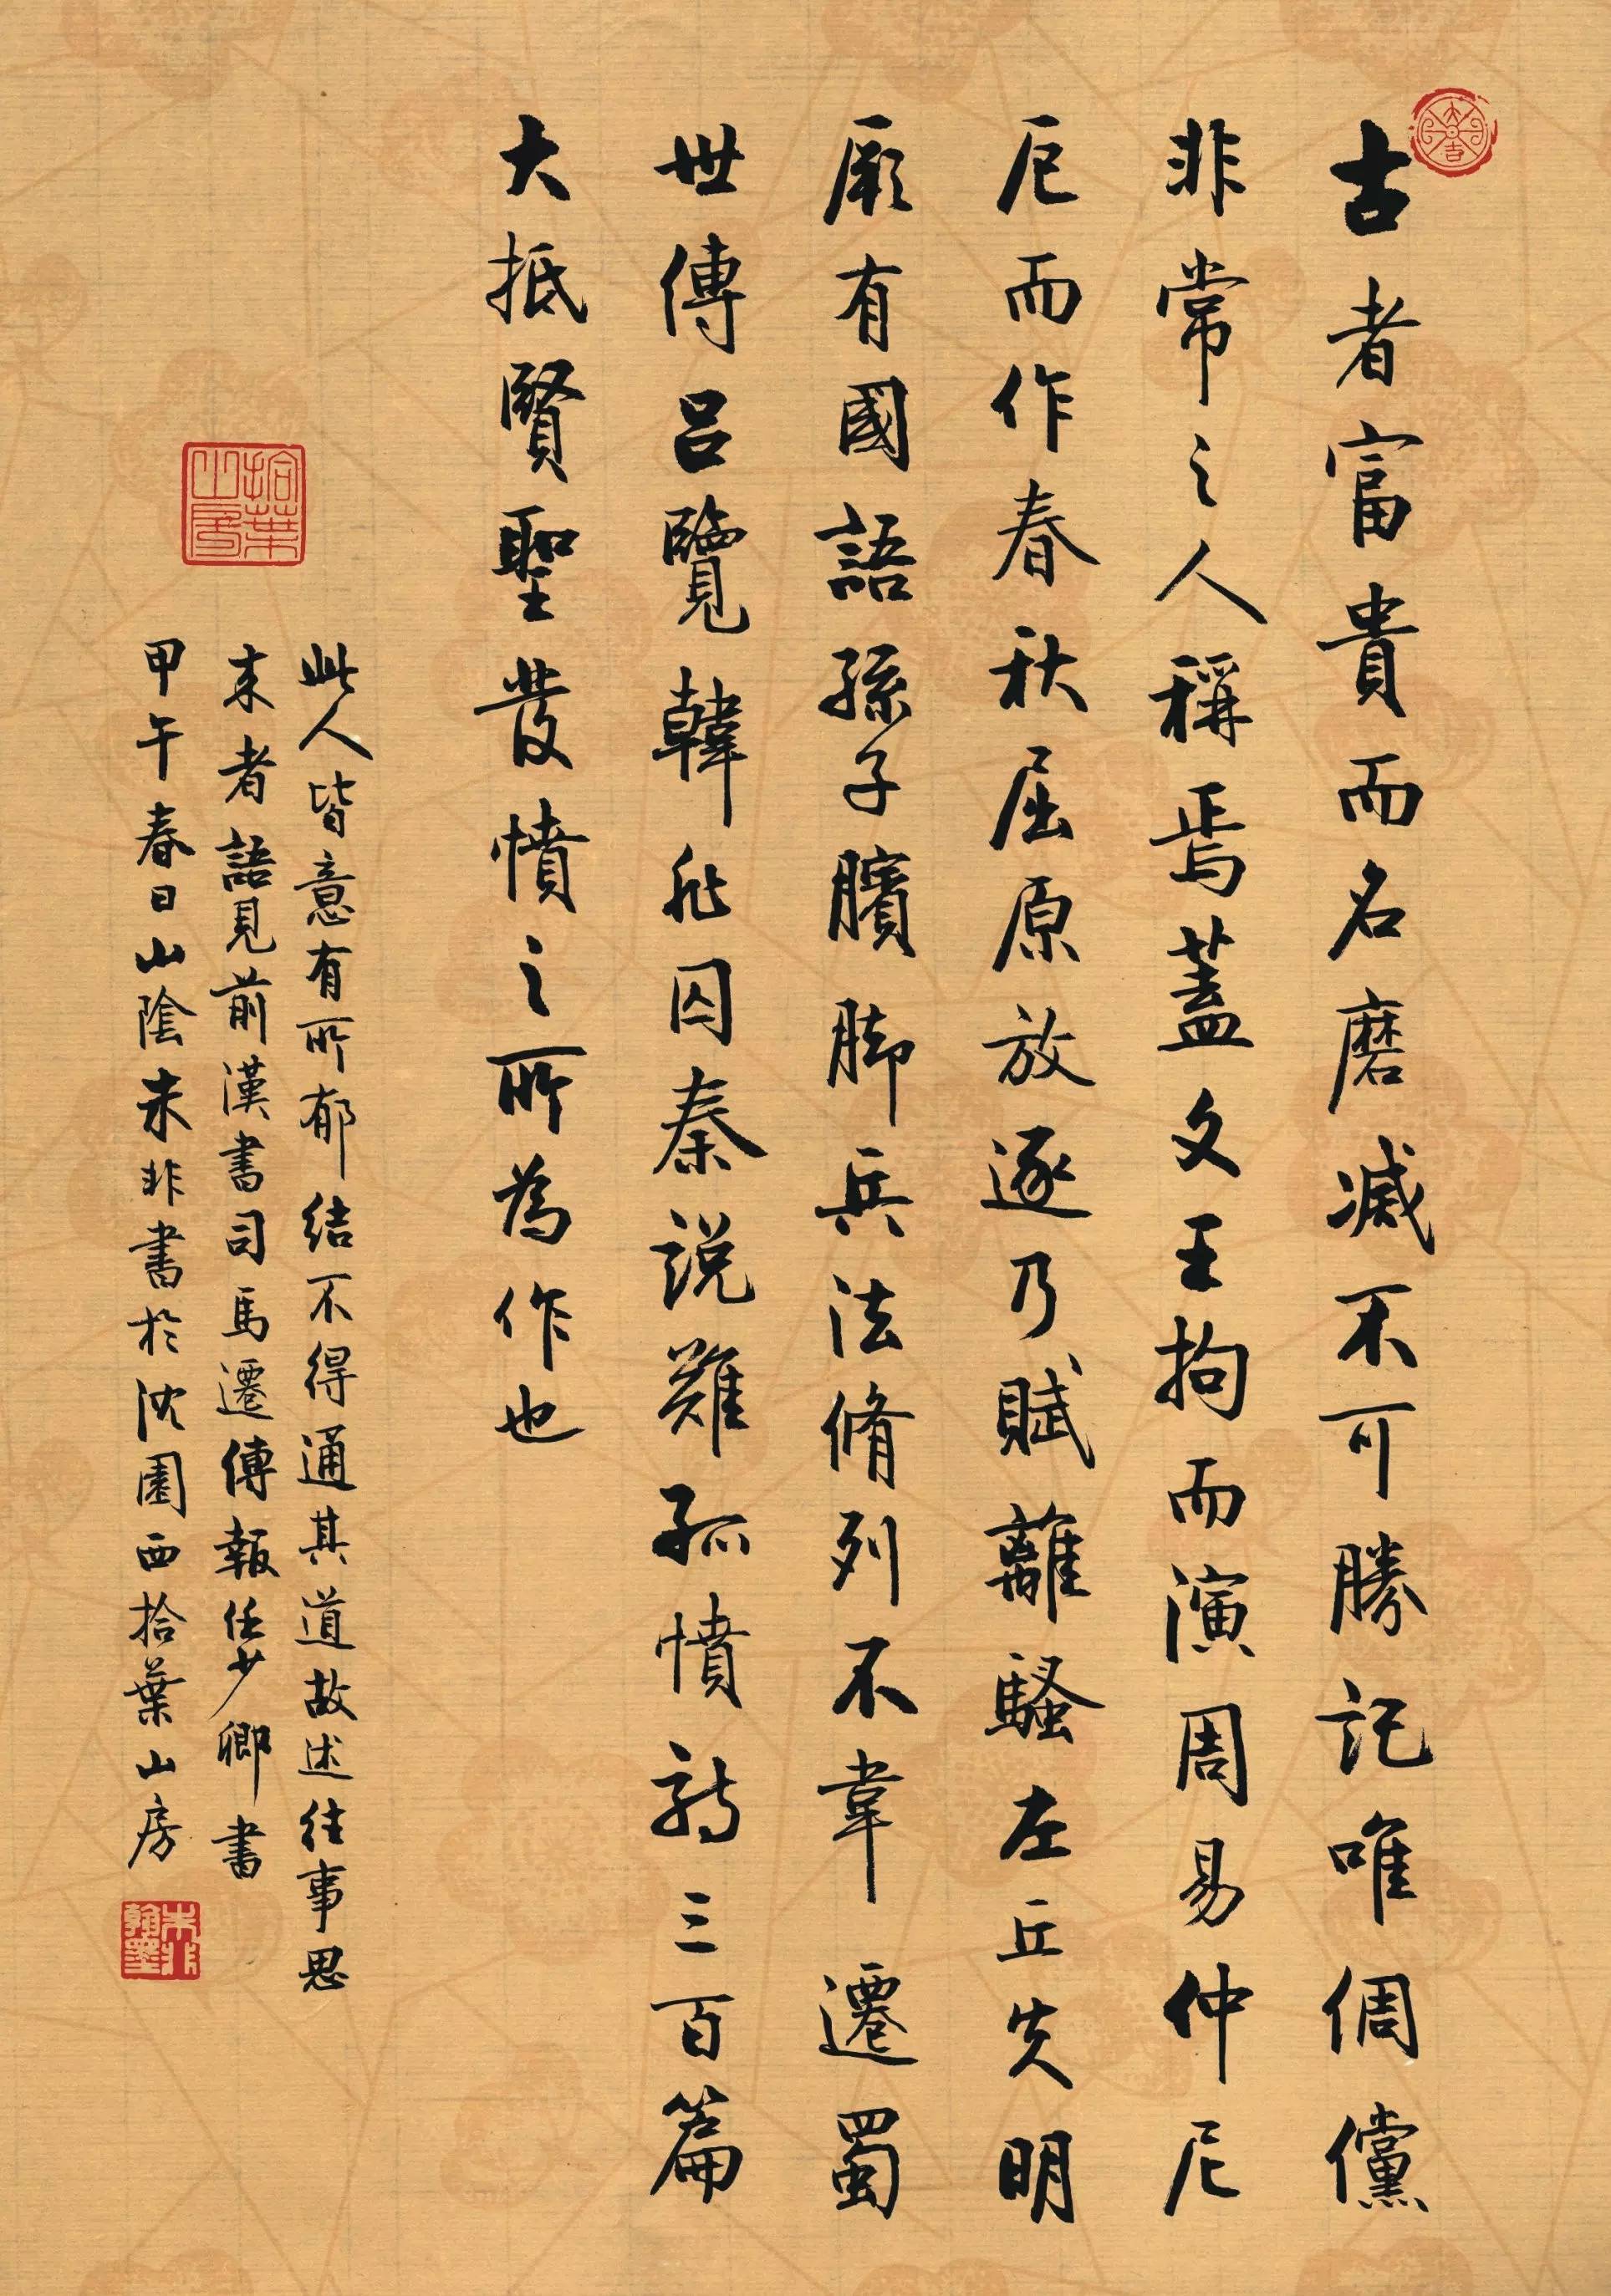 大吉
古者富貴而名磨滅不可勝記唯倜儻
非常之人稱焉蓋文王拘而演周易仲尼
厄而作春秋屈原放逐乃賦離騷左丘失明
厥有國語孫子臏脚兵法脩列不韋遷蜀
世傳呂覽韓非囚秦説難孤憤詩三百篇
大抵賢聖發憤之所為作也
此人皆意有所郁結不得通其道故述往事思
来者語見前漢書司馬遷傳報任少卿書
甲午春日山陰朱非書於沈園西拾葉山房
拾葉山房
朱非翰墨